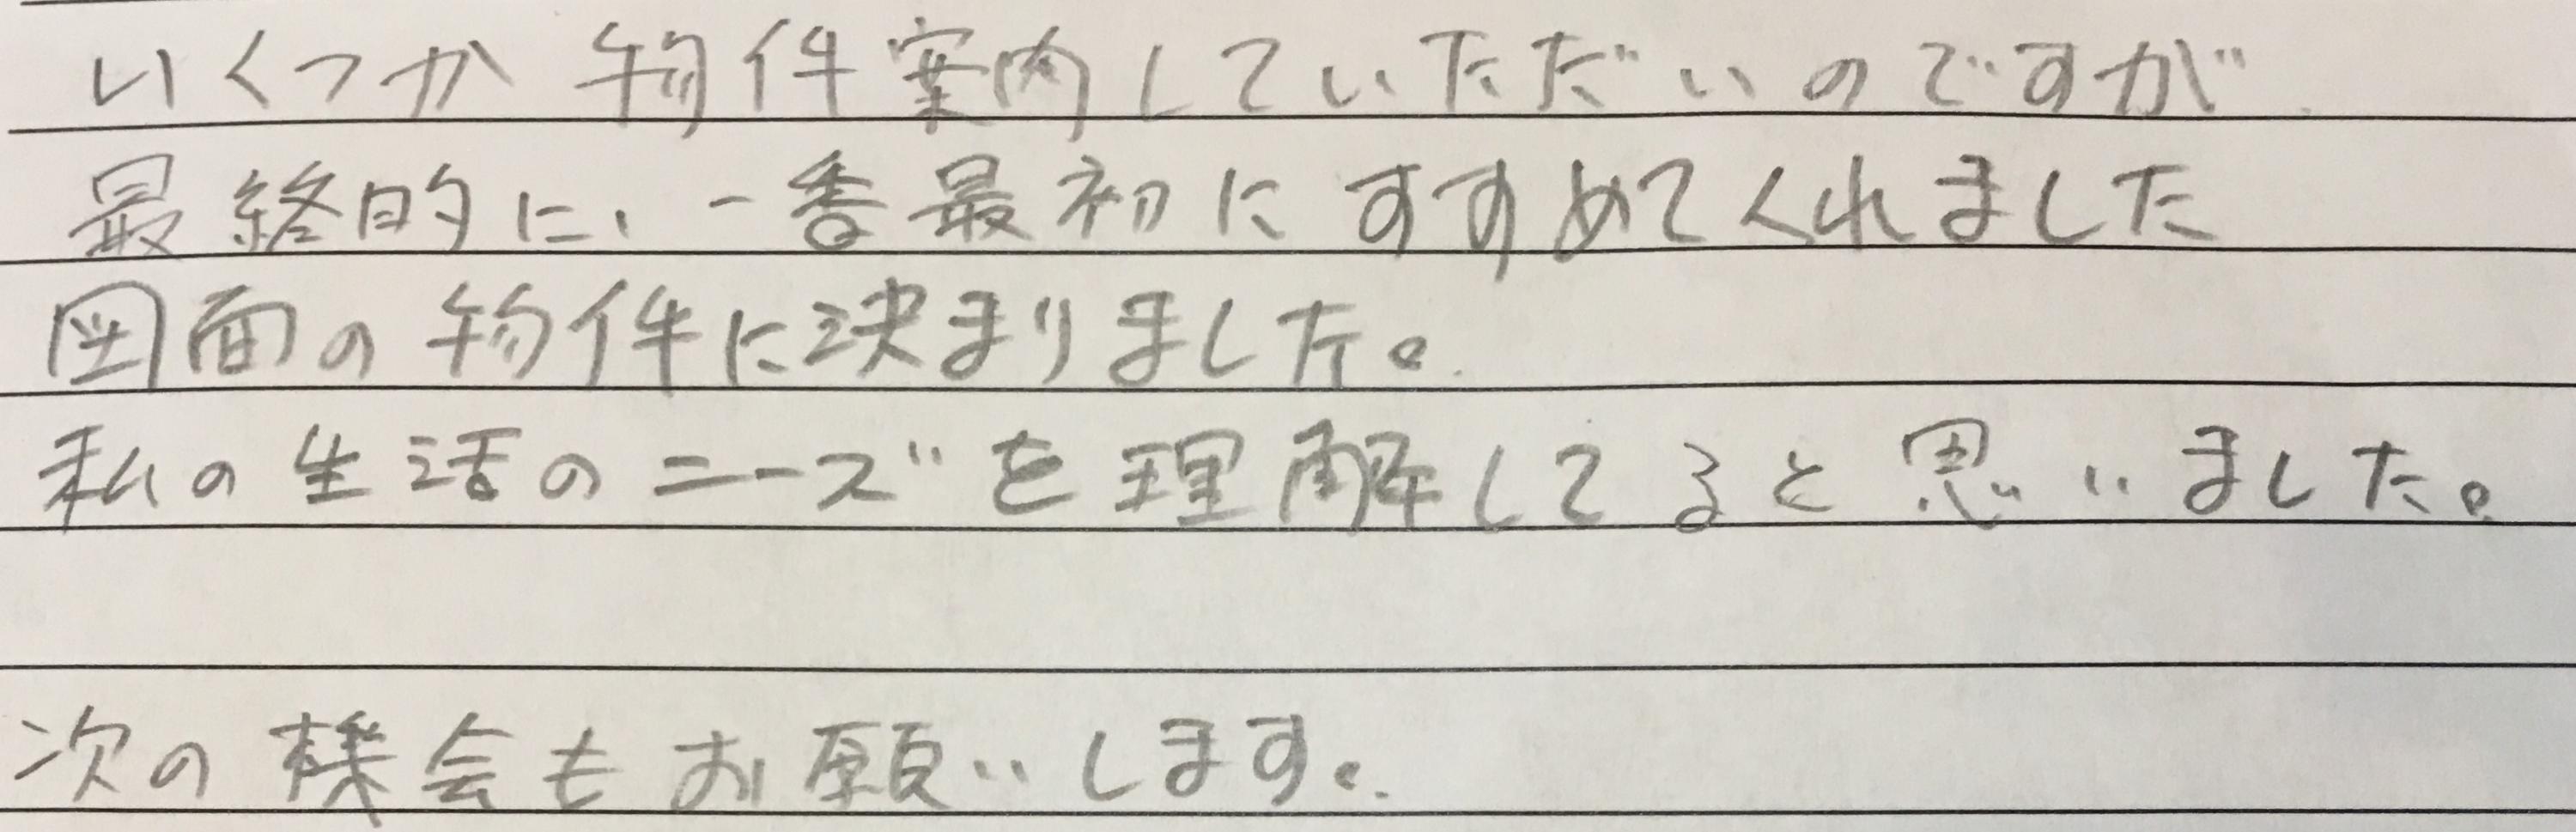 いくつか物件案内していただいのですが
最終的に、一番最初にすすめてくれました
図面の物件に決まりました。
私の生活のニーズを理解してると思いました。
次の機会もお願いします。